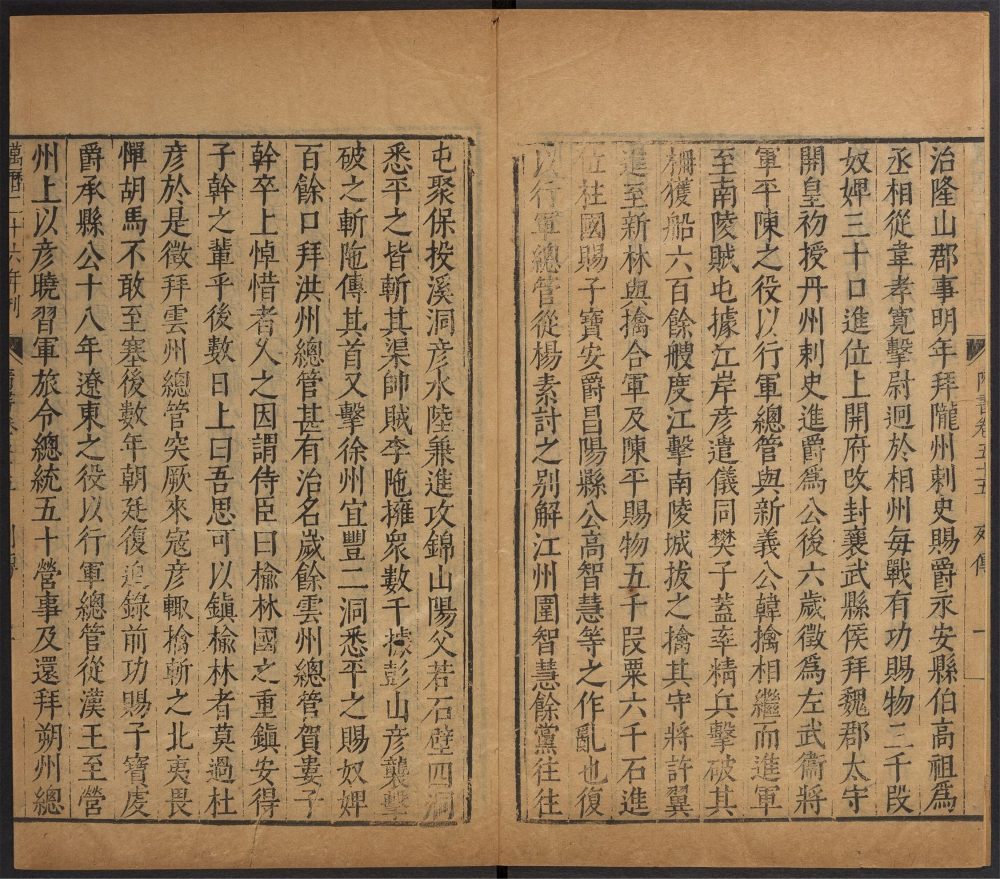 隋書卷五十五 列傳 一
治隆山郡事明年拜隴州刺史賜爵永安縣伯高祖爲
丞相從韋孝寬擊尉迥於相州每戰有功賜物三千段
奴婢三十口進位上開府改封襄武縣侯拜魏郡太守
開皇初授丹州刺史進爵爲公後六歲徵爲左武衞將
軍平陳之役以行軍總管與新義公韓擒相繼而進軍
至南陵賊屯據江岸彥遣儀同樊子蓋率精兵擊破其
柵獲船六百餘艘度江擊南陵城拔之擒其守將許翼
進至新林與擒合軍及陳平賜物五千段粟六千石進
位柱國賜子寶安爵昌陽縣公高智慧等之作亂也復
以行軍總管從楊素討之别解江州圍智慧餘黨往往
屯聚保投溪洞彥水陸兼進攻錦山陽父若石壁四洞
悉平之皆斬其渠帥賊李陁擁衆數千據彭山彥襲擊
破之斬陁傳其首又擊徐州宜豐二洞悉平之賜奴婢
百餘口拜洪州總管甚有治名歲餘雲州總管賀婁子
幹卒上悼惜者久之因謂侍臣曰榆林國之重鎭安得
子幹之輩乎後數日上曰吾思可以鎭榆林者莫過杜
彥於是徵拜雲州總管突厥來寇彥輒擒斬之北夷畏
憚胡馬不敢至塞後數年朝廷復追錄前功賜子寶虔
爵承縣公十八年遼東之役以行軍總管從漢王至營
州上以彥曉習軍旅令總統五十營事及還拜朔州總
萬曆二十六年刊